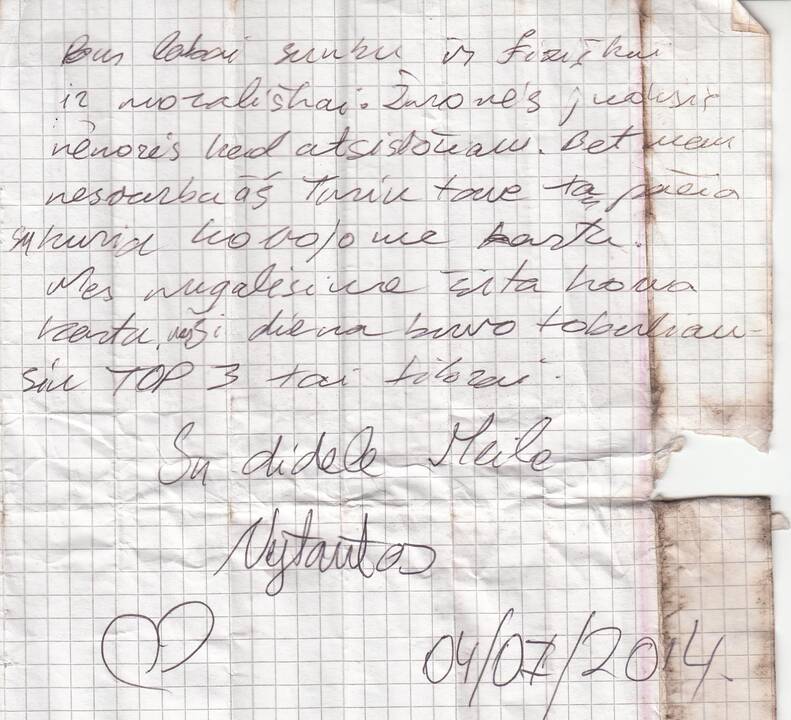 Bus labai sunku ir fiziškai
ir morališkai. Žmonės juoksis
nenorės kad atsistočiau. Bet man
nesvarbu aš Turiu tave tą pačia
su kuria kovojome kartu.
Mes nugalėsime šita kova
kartu, ši diena buvo tobuliau-
siu TOP 3 tai tikrai.
Su didele Meile
Vytautas
04/07/2014.